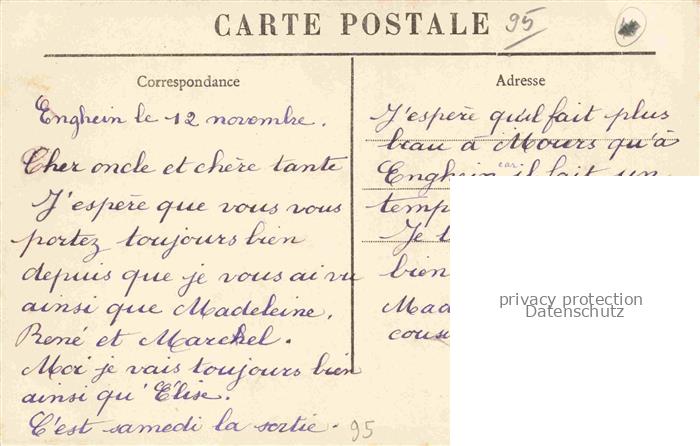 CARTE POSTALE
95
Correspondance
Enghein le 12 novembre.
Cher oncle et chère tante
J'espère que vous vous
portez toujours bien
depuis que je vous ai vu
ainsi que Madeleine,
René et Marckel.
Moi je vais toujours bien
ainsi qu'Élise.
C'est samedi la sortie.
95
Adresse
J'espère qu'il fait plus
beau à Mours qu'à
Enghein car il fait un
temp
Je
bien
Mad
cous
privacy protection
Datenschutz